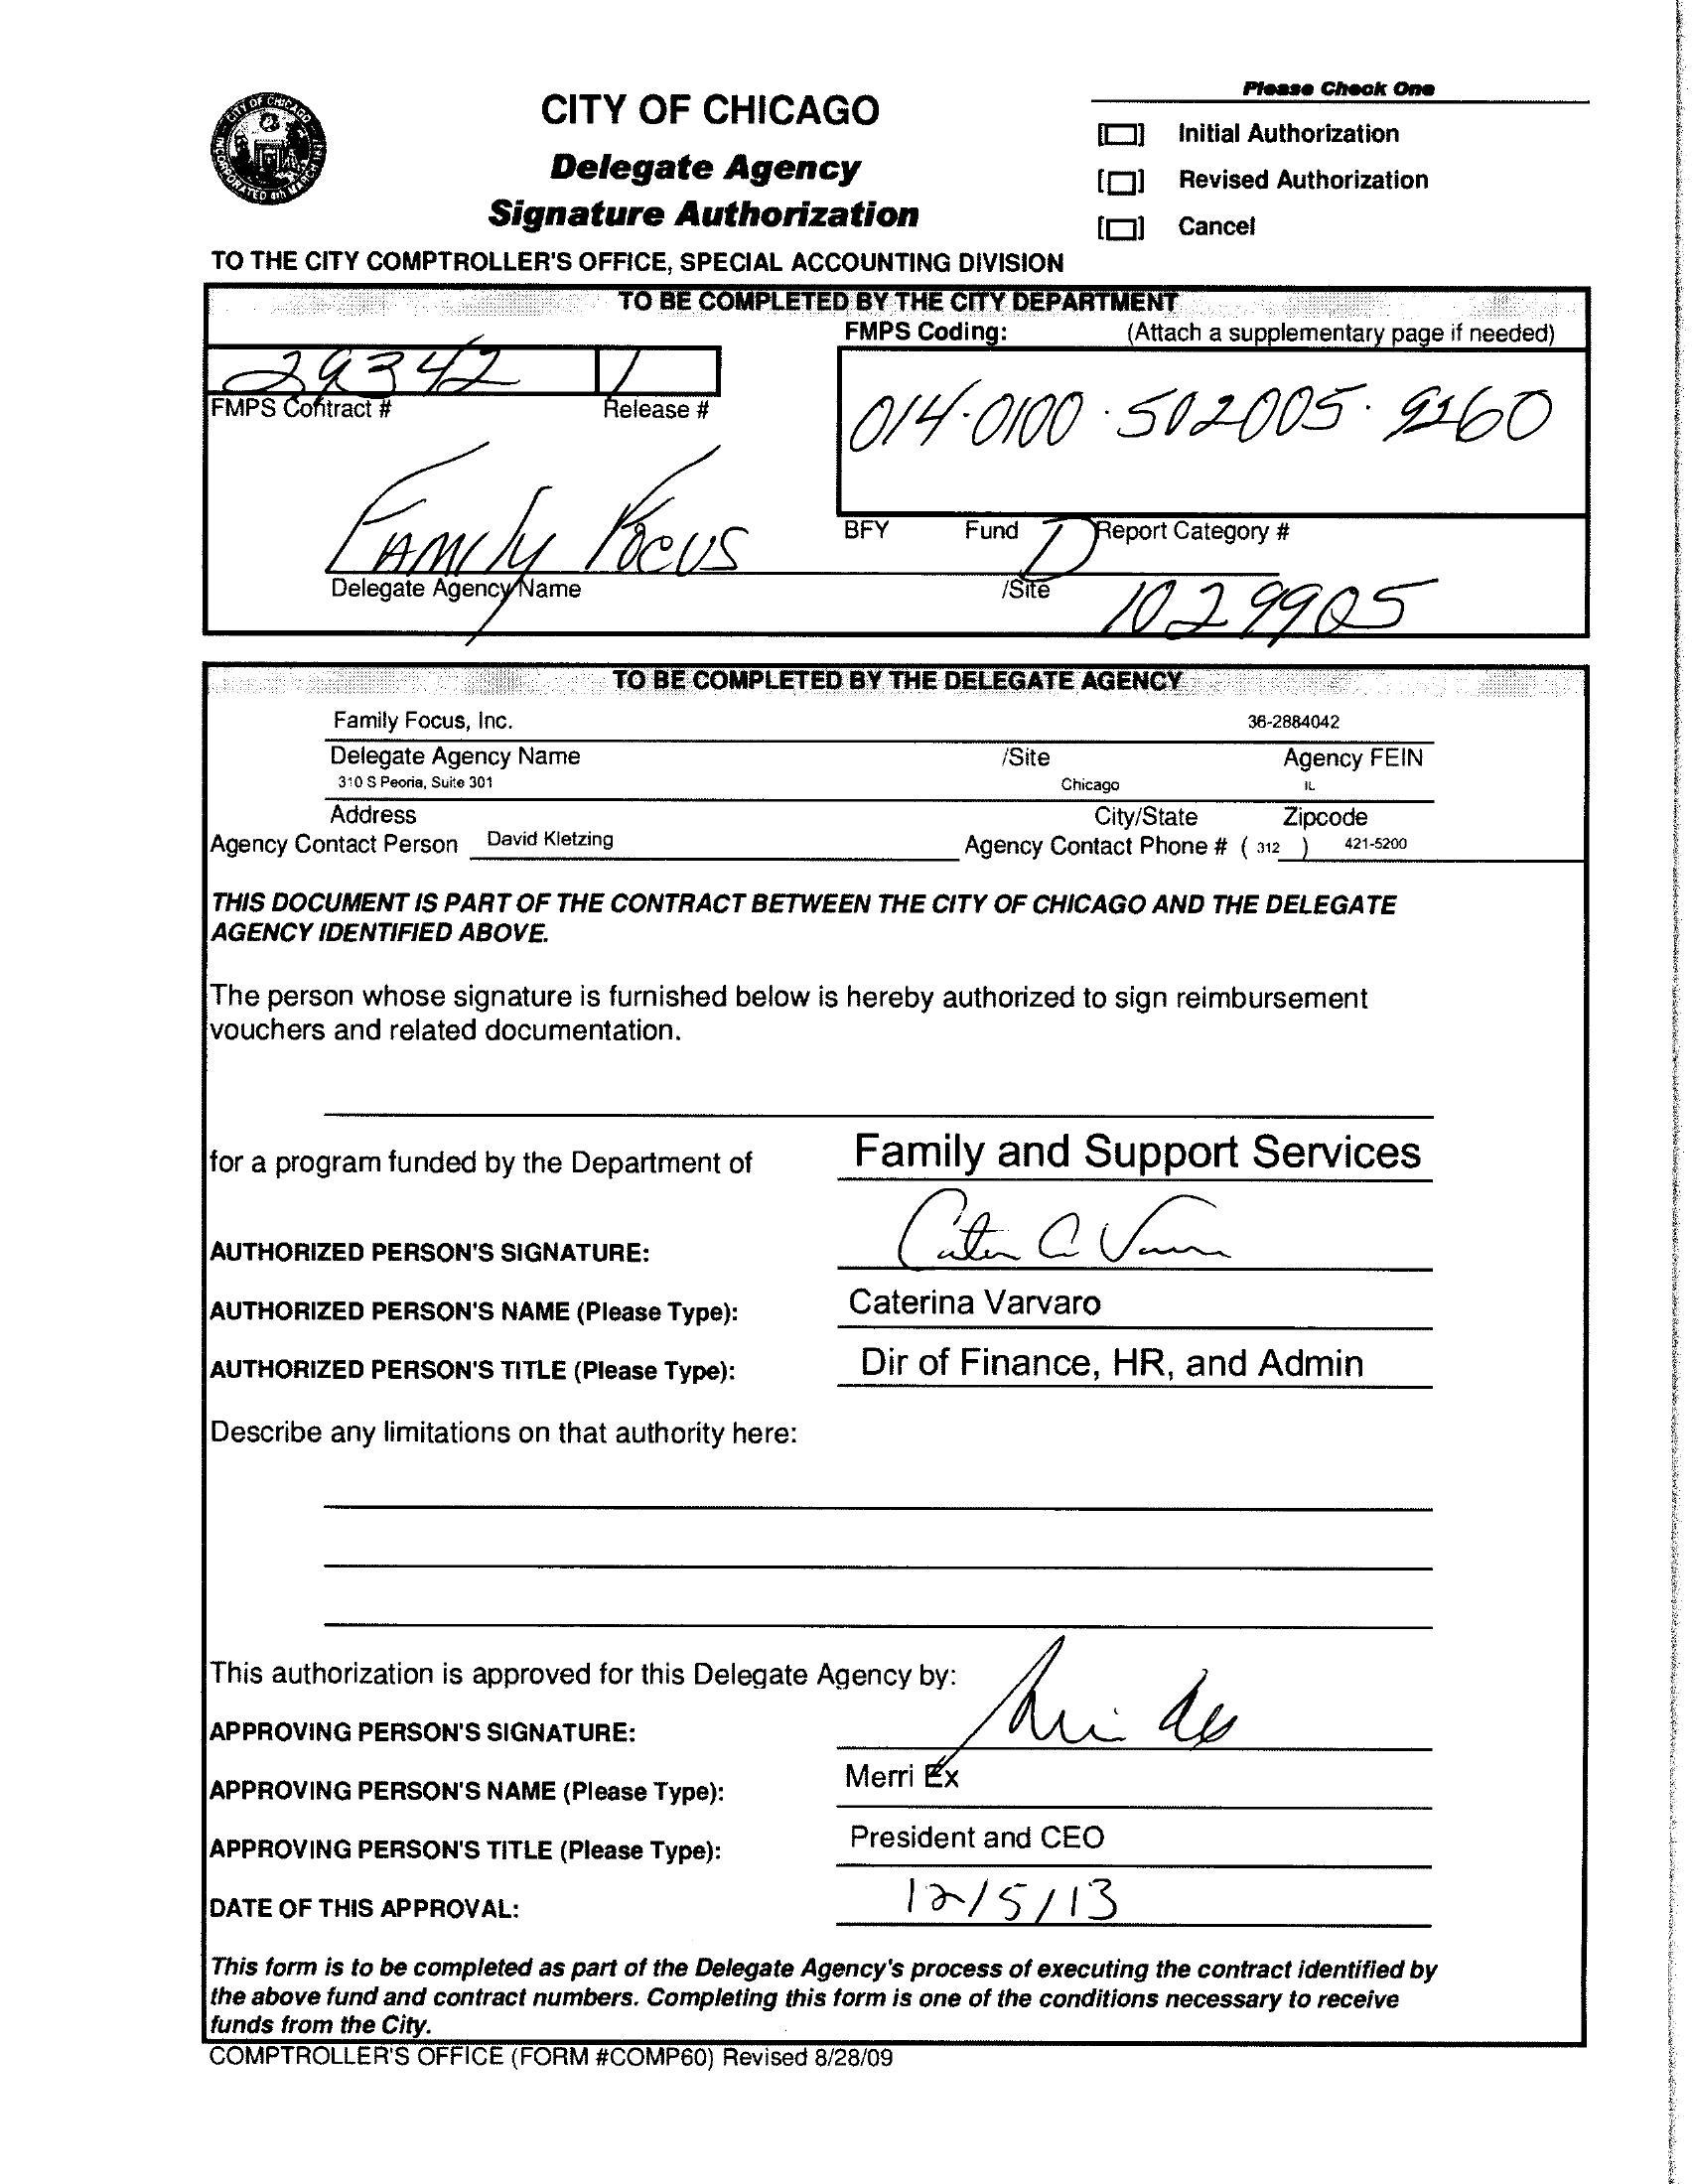 Please Check One
CITY OF CHICAGO
Delegate Agency
Signature Authorization
Initial Authorization
Revised Authorization
Cancel
TO THE CITY COMPTROLLER'S OFFICE, SPECIAL ACCOUNTING DIVISION
TO BE COMPLETED BY THE CITY DEPARTMENT
FMPS Coding: (Attach a supplementary page if needed)
29342 1
FMPS Contract # Release #
014·0100·502005·9260
BFY Fund Report Category #
Family Focus
Delegate Agency Name /Site
1029905
TO BE COMPLETED BY THE DELEGATE AGENCY
Family Focus, Inc. 36-2884042
Delegate Agency Name /Site Agency FEIN
310 S Peoria, Suite 301 Chicago IL
Address City/State Zipcode
Agency Contact Person David Kletzing Agency Contact Phone # ( 312 ) 421-5200
THIS DOCUMENT IS PART OF THE CONTRACT BETWEEN THE CITY OF CHICAGO AND THE DELEGATE
AGENCY IDENTIFIED ABOVE.
The person whose signature is furnished below is hereby authorized to sign reimbursement
vouchers and related documentation.
for a program funded by the Department of Family and Support Services
AUTHORIZED PERSON'S SIGNATURE:
AUTHORIZED PERSON'S NAME (Please Type): Caterina Varvaro
AUTHORIZED PERSON'S TITLE (Please Type): Dir of Finance, HR, and Admin
Describe any limitations on that authority here:
This authorization is approved for this Delegate Agency by:
APPROVING PERSON'S SIGNATURE:
APPROVING PERSON'S NAME (Please Type): Merri Ex
APPROVING PERSON'S TITLE (Please Type): President and CEO
DATE OF THIS APPROVAL: 12/5/13
This form is to be completed as part of the Delegate Agency's process of executing the contract identified by
the above fund and contract numbers. Completing this form is one of the conditions necessary to receive
funds from the City.
COMPTROLLER'S OFFICE (FORM #COMP60) Revised 8/28/09